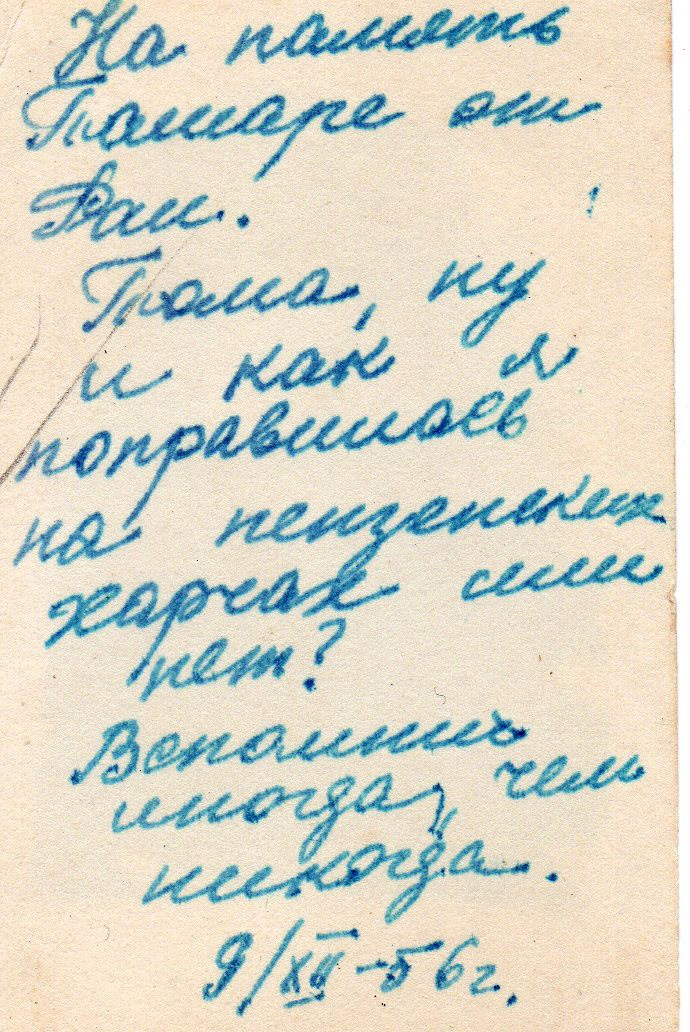 На память
Тамаре от
Раи.
Тома, ну
и как я
поправилась
на пензенских
харчах или
нет?
Вспомни
иногда, чем
никогда.
9/XII-56г.